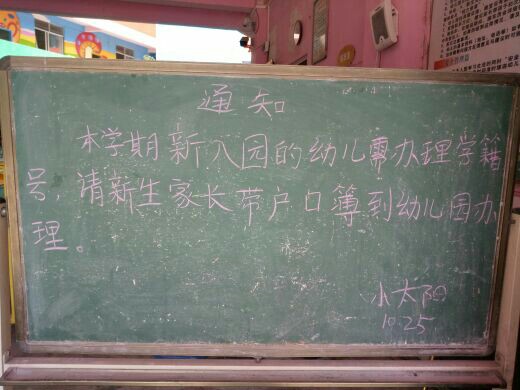 通知
本学期新入园的幼儿需办理学籍
号,请新生家长带户口簿到幼儿园办
理。
小太阳
10.25